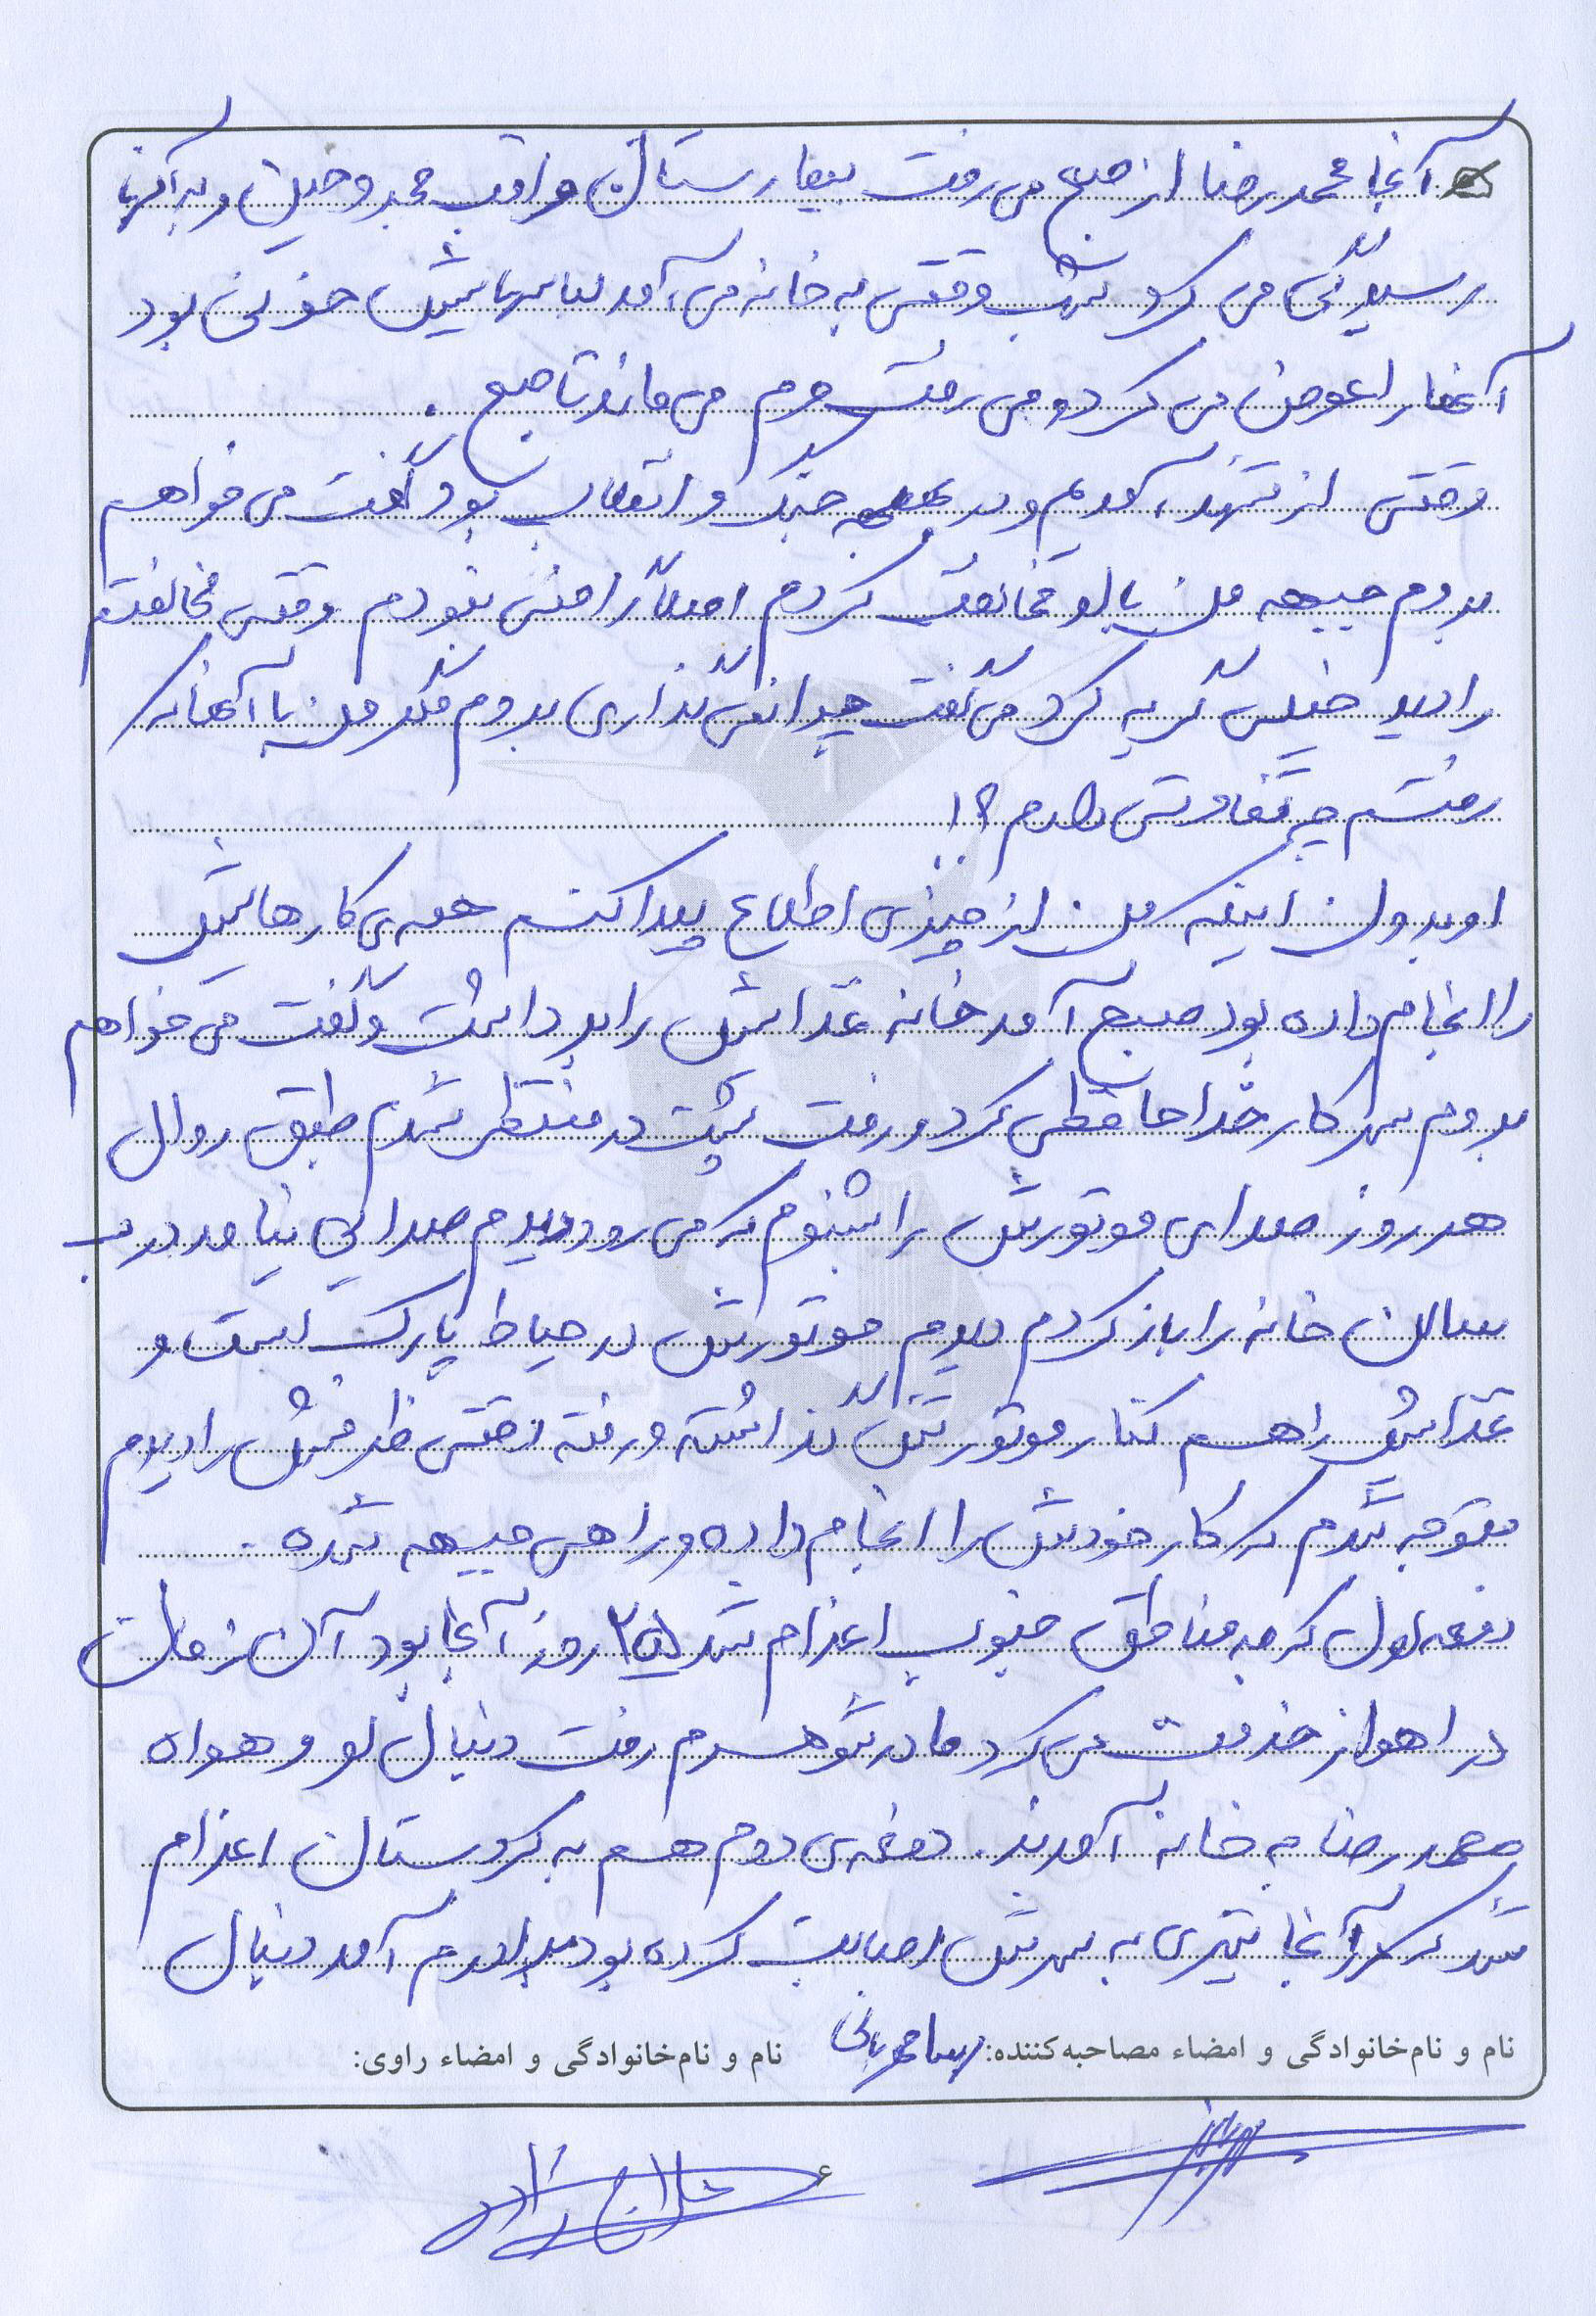 آنجا محمدرضا از صبح می رفت بیمارستان مراقب مجروحین و به آنها
رسیدگی می کرد شب وقتی به خانه می آمد لباسهایش خونی بود
آنها را عوض می کرد و می رفت حرم می ماند تا صبح .
وقتی از مشهد آمدیم و در جنگ و انقلاب بود گفت می خواهم
بروم جبهه من با او مخالفت کردم اصلاً راضی نبودم وقتی مخالفتم
را دید خیلی گریه کرد می گفت چرا نمی گذاری بروم مگر من با آنها که
رفتند چه تفاوتی دارم ؟!
او بدون اینکه من از چیزی اطلاع پیدا کنم همه ی کارهایش
را انجام داده بود صبح آمد خانه غذایش را برداشت و گفت می خواهم
بروم سر کار خداحافظی کرد و رفت پشت در منتظر شدم طبق روال
هر روز صدای موتورش را بشنوم که می رود دیدم صدایی نیامد درب
سالن خانه را باز کردم دیدم موتورش در حیاط پارک است و
غذایش را هم کنار موتورش گذاشته و رفته وقتی ظرفش را دیدم
متوجه شدم که کار خودش را انجام داده و راهی جبهه شده .
دفعه اول که به مناطق جنوب اعزام شد ۲۵ روز آنجا بود آن زمان
در اهواز خدمت می کرد مادر شوهرم رفت دنبال او و همراه
محمدرضا به خانه آمدند . دفعه ی دوم هم به کردستان اعزام
شد که آنجا تیری به سرش اصابت کرده بود برادرم آمد دنبال
نام و نام‌خانوادگی و امضاء مصاحبه‌کننده: نام و نام‌خانوادگی و امضاء راوی: